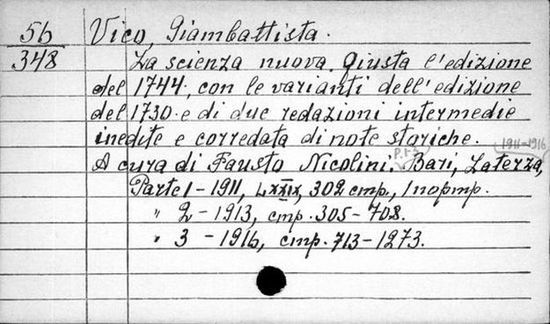 56 Vico, Giambattista.
348 La scienza nuova. Giusta l'edizione
del 1744, con le varianti dell'edizione
del 1730 e di due redazioni intermedie
inedite e corredata di note storiche.
P.1-3 1911-1916
A cura di Fausto Nicolini. Bari, Laterza,
Parte 1 - 1911, LXXIX, 302 стр., 1 портр.
" 2 - 1913, стр. 305-708.
" 3 - 1916, стр. 713-1273.